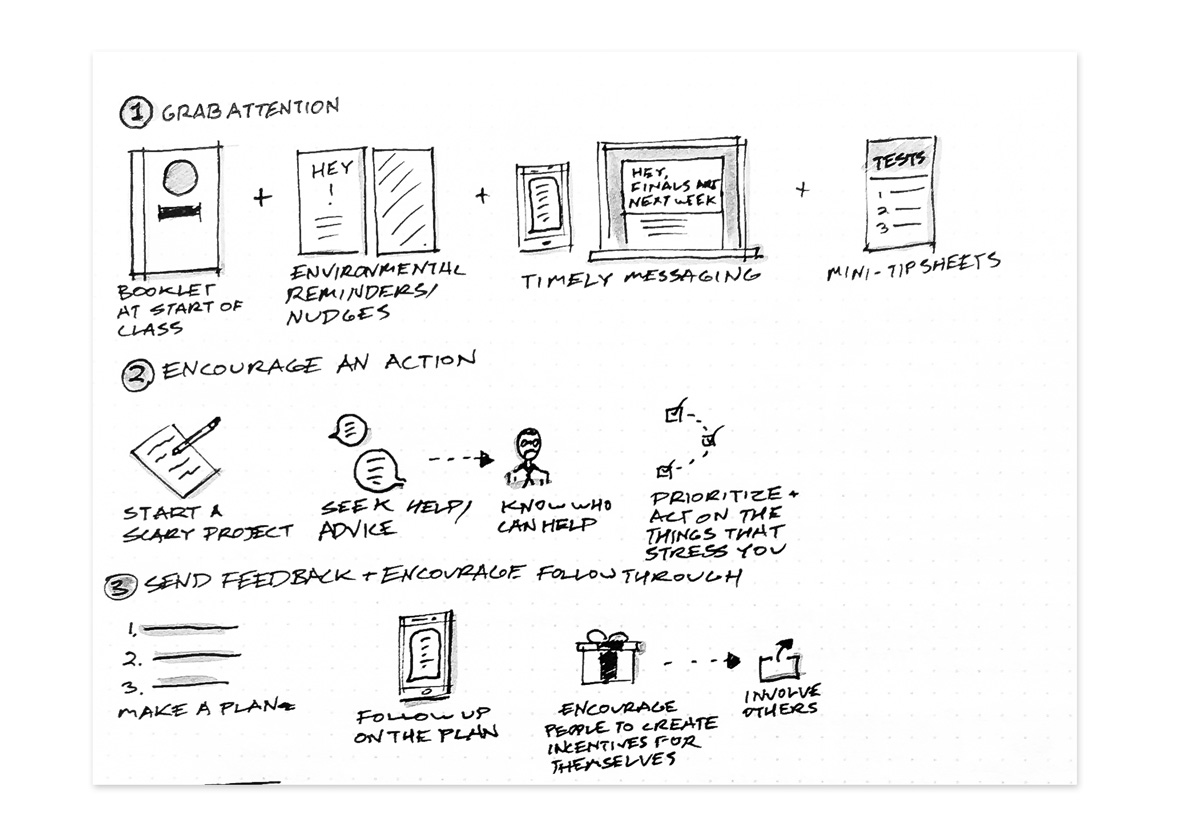 1 GRAB ATTENTION
HEY
!
HEY,
FINALS ARE
NEXT WEEK
TESTS
1
2
3
+
+
+
BOOKLET
AT START OF
CLASS
ENVIRONMENTAL
REMINDERS/
NUDGES
TIMELY MESSAGING
MINI-TIPSHEETS
2 ENCOURAGE AN ACTION
START A
SCARY PROJECT
SEEK HELP/
ADVICE
KNOW WHO
CAN HELP
PRIORITIZE +
ACT ON THE
THINGS THAT
STRESS YOU
3 SEND FEEDBACK + ENCOURAGE FOLLOW THROUGH
1.
2.
3.
MAKE A PLAN
FOLLOW UP
ON THE PLAN
ENCOURAGE
PEOPLE TO CREATE
INCENTIVES FOR
THEMSELVES
INVOLVE
OTHERS